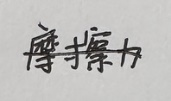 摩擦力